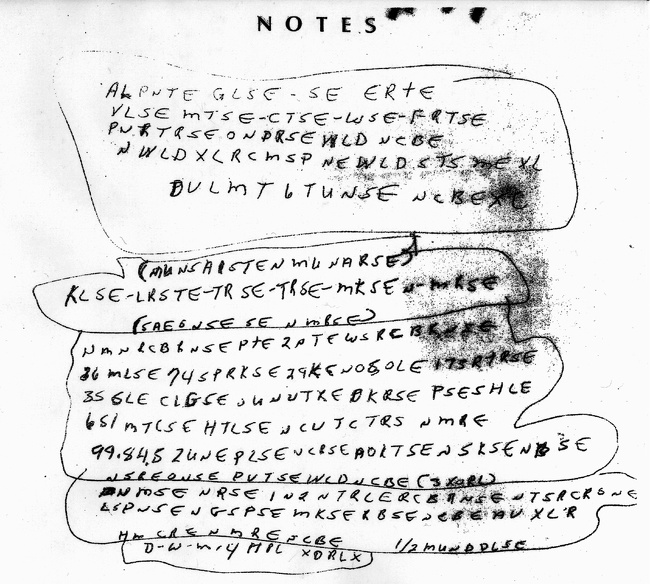 NOTES
ALPNTE GLSE-SE ERTE
VLSE MTSE-CTSE-WSE-FRTSE
PNRTRSEONDRSEWLD NCBE
NWLDXLRCMSP NEWLDSTS ME XL
DULMT 6 TUNSE NCBEXC
(MUNSARSTENMUNARSE)
KLSE-LRSTE-TRSE-TRSE-MKSEN-MRSE
(SAEGNSE SE N MRSE)
NMNRCBRNSEPTE2PTEWSRCBRNSE
36MLSE74SPRKSE29KENOSOLE173RTRSE
35 GLE CLGSE UNUTXE DKRSE PSESHLE
651 MTCSE HTLSE NCUTCTRS NMRE
99.84.52UNEPLSENCRSEAOLTSENSKSENBSE
NSREONSE PUTSEWLDNCBE (3XORL)
NMSE NRSE IN2NTRLERCBRNSE NTSRCRONE
LSPNSENGSPSE MKSERBSENCBEAU XLR
HM CRE NMRE NCBE 1/2 MUNDDLSE
D-W-M-4 MPL XDRLX